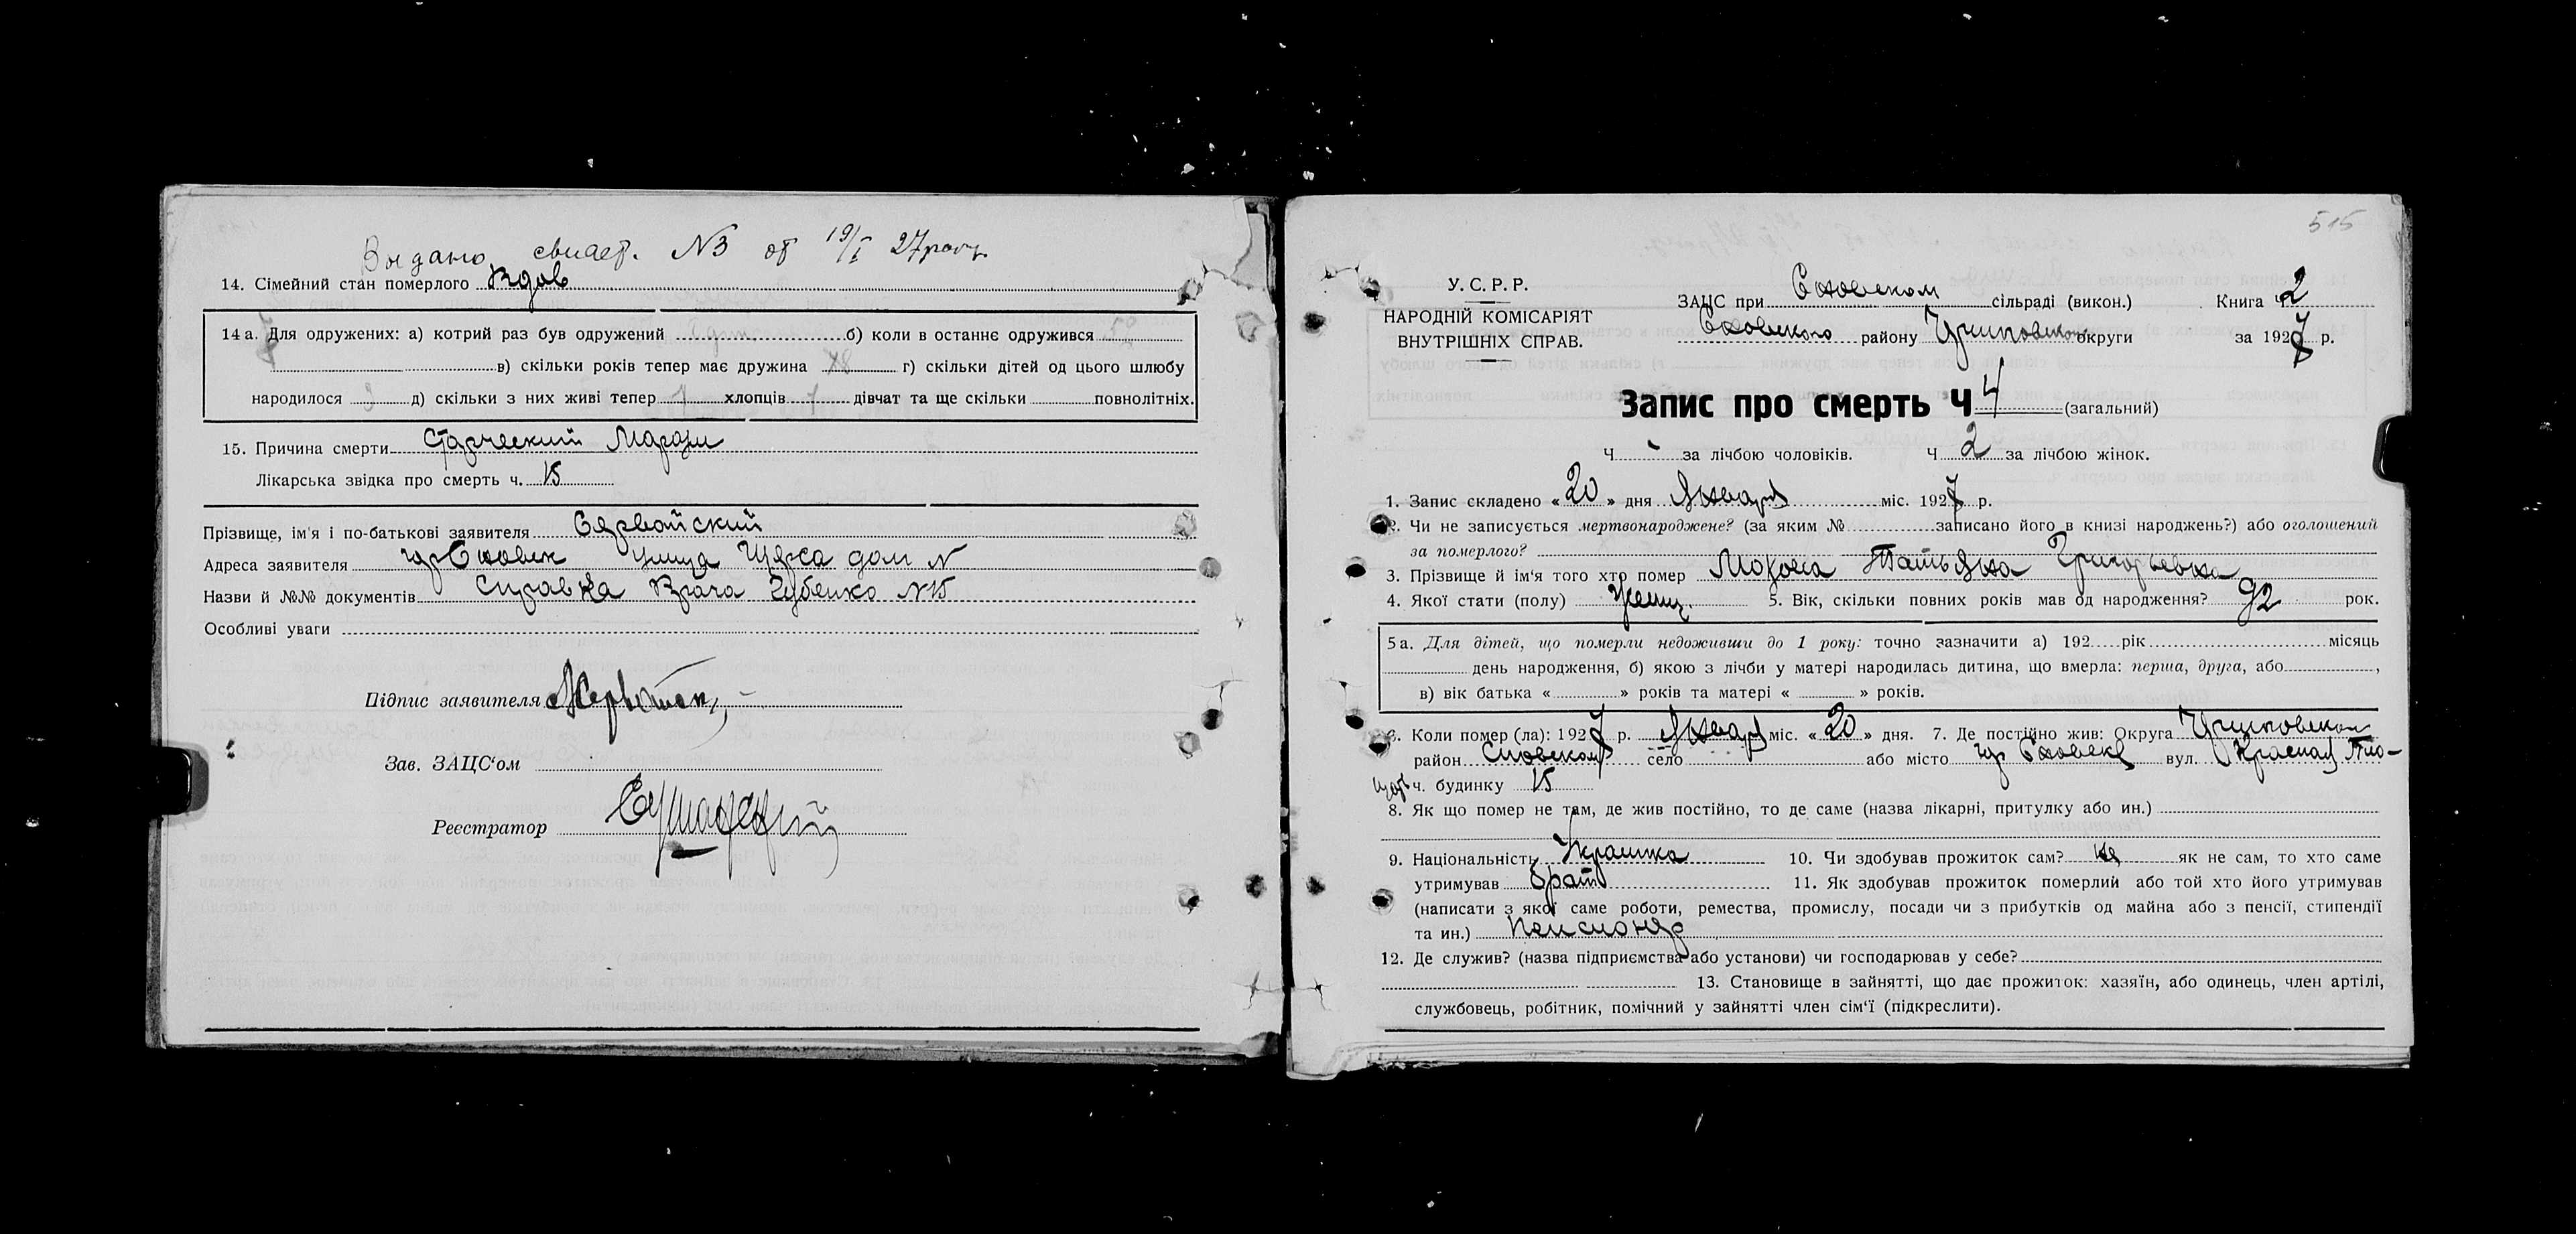 Выдано свидет. №3 от 19/I 27 року
14. Сімейний стан померлого Вдов
14 а. Для одружених: а) котрий раз був одружений б) коли в останнє одружився
в) скільки років тепер має дружина г) скільки дітей од цього шлюбу
народилося д) скільки з них живі тепер хлопців дівчат та ще скільки повнолітніх.
15. Причина смерти Старческий Маразм
Лікарська звідка про смерть ч. 15
Прізвище, ім'я і по-батькові заявителя
Адреса заявителя гр Сновск улица Щорса дом N
Назви й №№ документів Справка Врача Губенко N15
Особливі уваги
Підпис заявителя
Зав. ЗАЦС'ом
Реєстратор
515
У. С. Р. Р.
НАРОДНІЙ КОМІСАРІЯТ
ВНУТРІШНІХ СПРАВ.
ЗАЦС при Сновском сільраді (викон.) Книга 2
Сновского району округи за 1927 р.
Запис про смерть Ч 4 (загальний)
Ч за лічбою чоловіків. Ч 2 за лічбою жінок.
1. Запис складено «20» дня Января міс. 1927 р.
2. Чи не записується мертвонароджене? (за яким № записано його в книзі народжень?) або оголошений
за померлого?
3. Прізвище й ім'я того хто помер Татьяна Григорьевна
4. Якої стати (полу) женщ. 5. Вік, скільки повних років мав од народження? 92 рок.
5 а. Для дітей, що померли недоживши до 1 року: точно зазначити а) 192 рік місяць
день народження, б) якою з лічби у матері народилась дитина, що вмерла: перша, друга, або ,
в) вік батька « » років та матері « » років.
6. Коли помер (ла): 1927 р. Января міс. «20» дня. 7. Де постійно жив: Округа
район Сновском село або місто гр Сновск вул. Красная Пло-
щадь ч. будинку 15
8. Як що помер не там, де жив постійно, то де саме (назва лікарні, притулку або ин.)
9. Національність Украинка 10. Чи здобував прожиток сам? не як не сам, то хто саме
утримував брат 11. Як здобував прожиток померлий або той хто його утримував
(написати з якої саме роботи, ремества, промислу, посади чи з прибутків од майна або з пенсії, стипендії
та ин.) Пенсионер
12. Де служив? (назва підприємства або установи) чи господарював у себе?
13. Становище в зайнятті, що дає прожиток: хазяїн, або одинець, член артілі,
службовець, робітник, помічний у зайнятті член сім'ї (підкреслити).